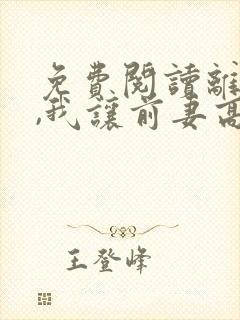 免費閱讀離
,我讓前妻高
王登峰